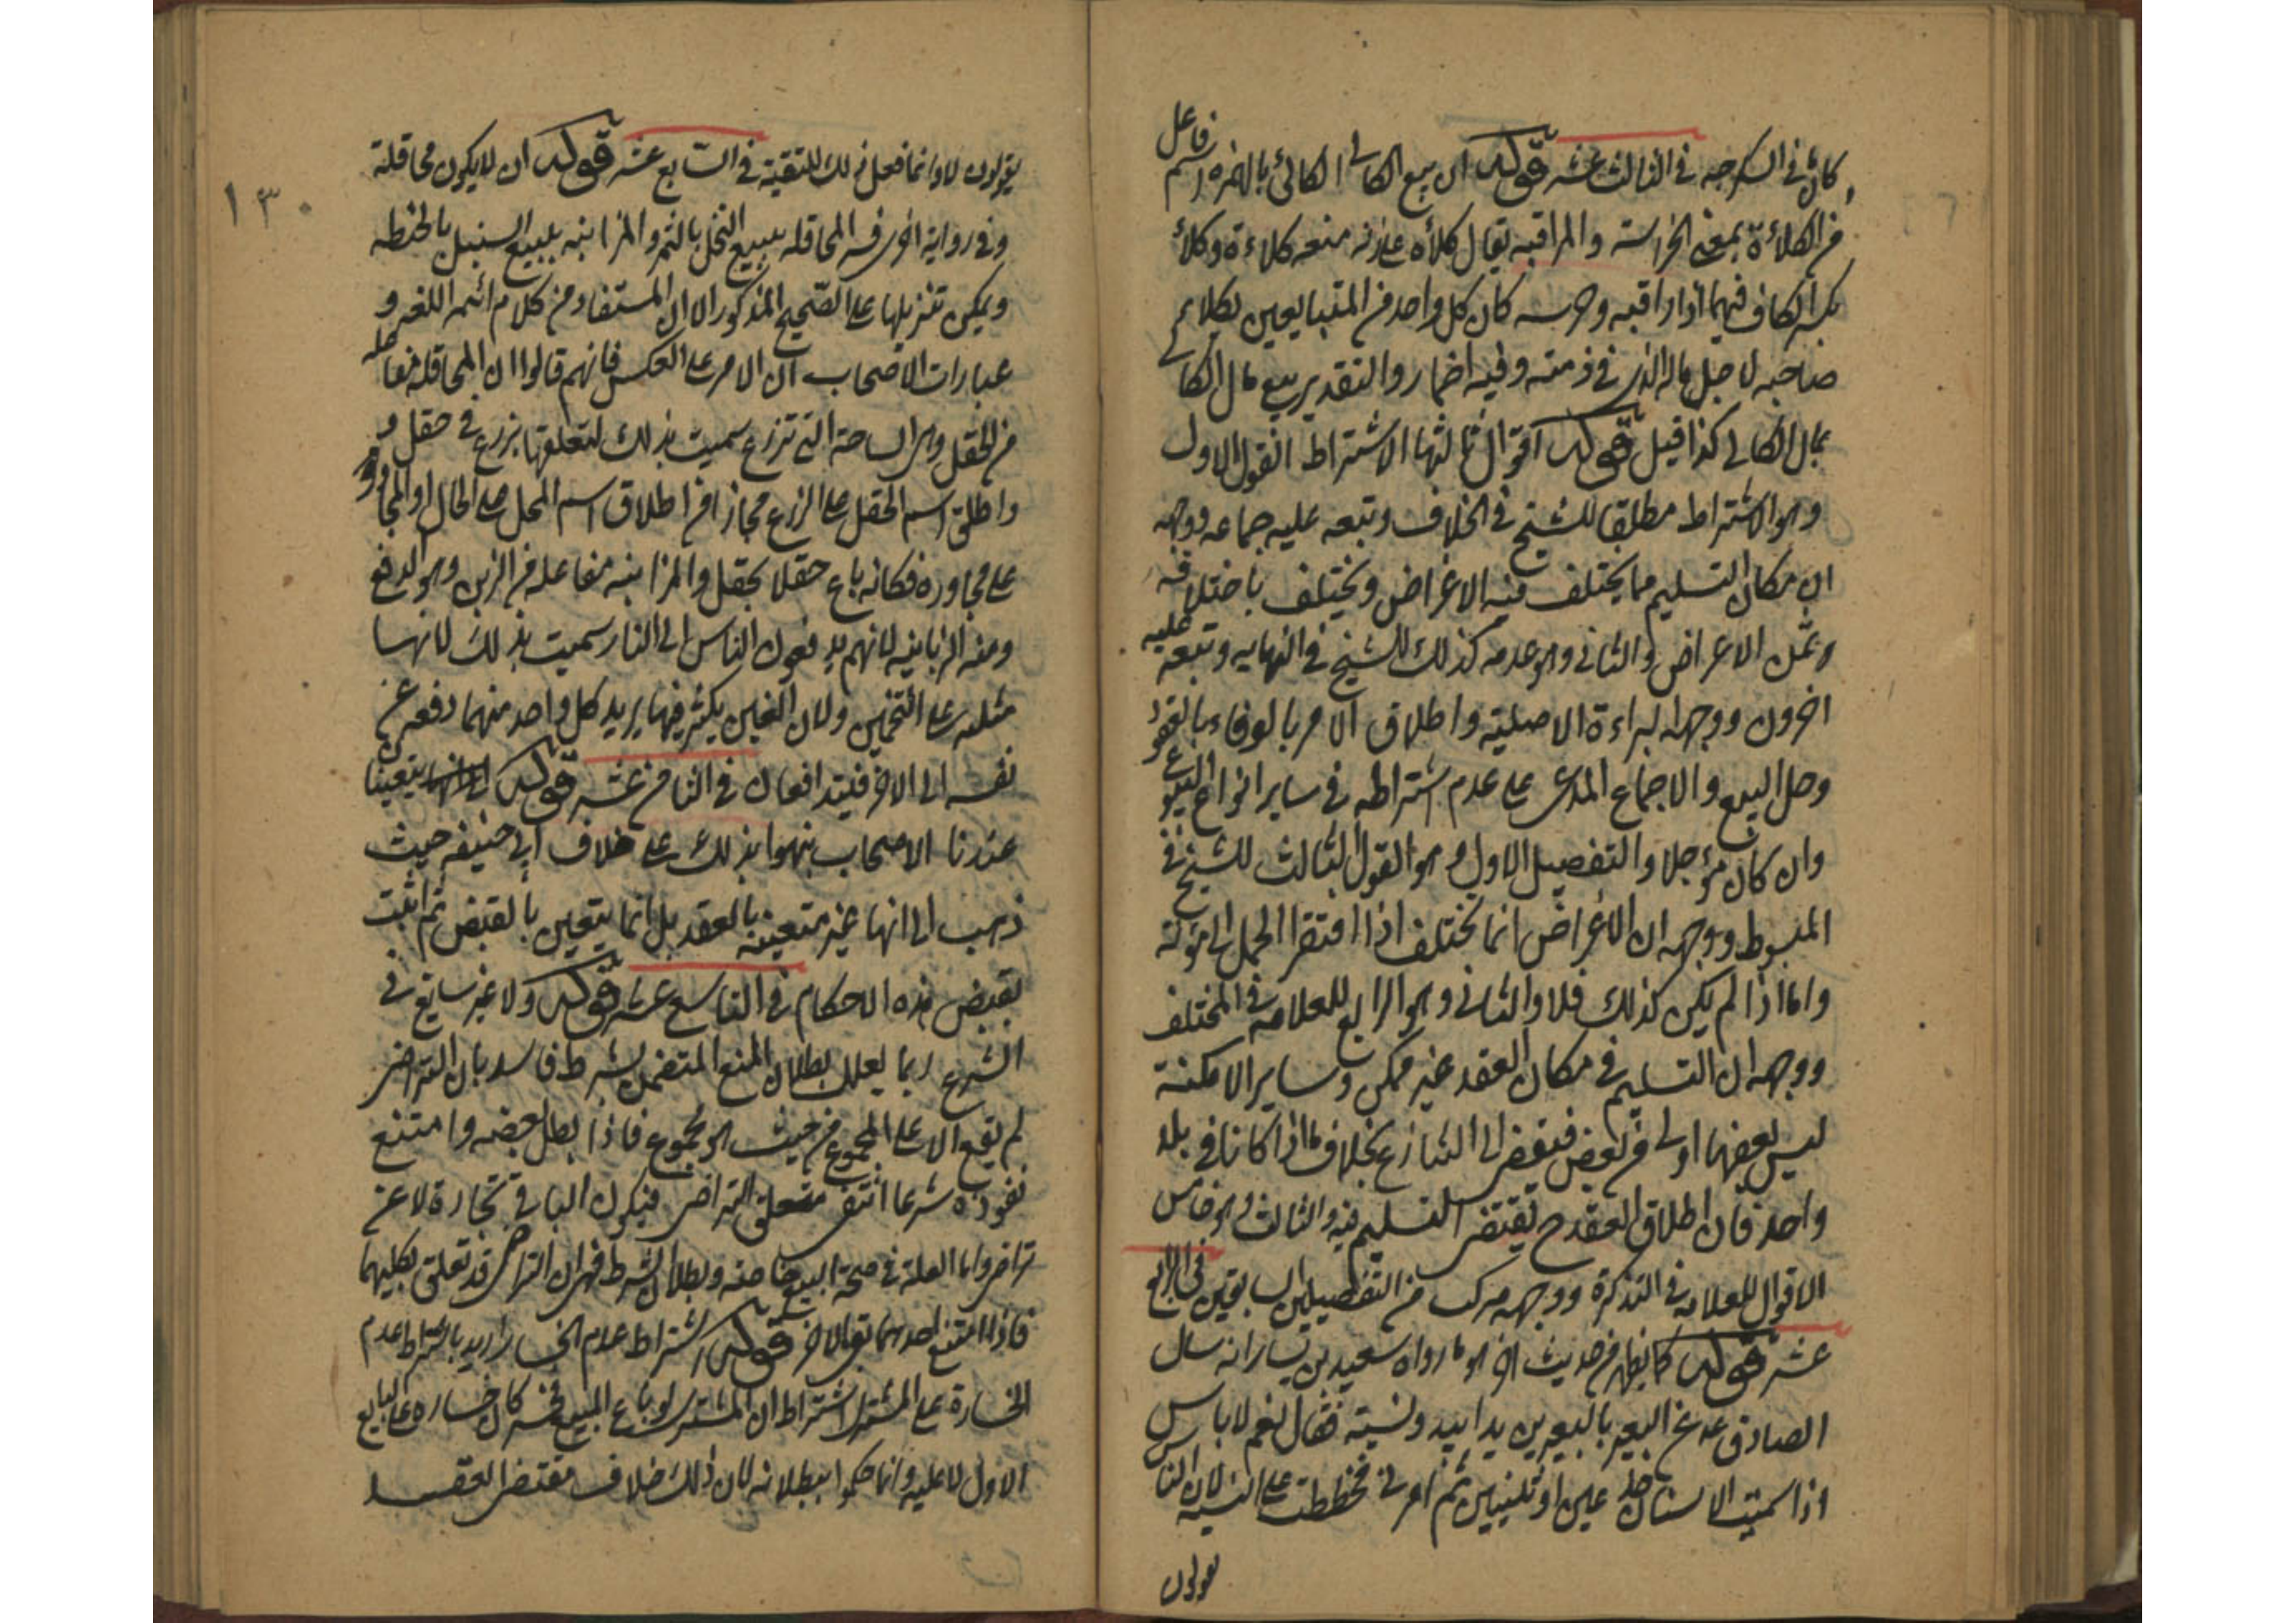 كان في السكرجه في الثالث عشر قوله ان بيع الكالي الكالئ بالهمزه اسم فاعل
من الكلاءة بمعنى الحراسته والمراقبه يقال كلأه على زنه منعه كلاءة وكلأ
بكسر الكاف فيهما اذا راقبه وحرسه كان كل واحد من المتبايعين يكلا
صاحبه لاجل ماله الذى في ذمته وفيه اضمار والتقدير بيع مال الكالي
بمال الكالى كذا قيل قوله اقوال ثالثها الاشتراط القول الاول
وهو الاشتراط مطلقا للشيخ في الخلاف وتبعه عليه جماعه ووجهه
ان مكان التسليم مما يختلف فيه الاغراض ويختلف باختلافه
الاعراض والثانى وهو عدمه كذلك للشيخ في النهايه وتبعه عليه
اخرون ووجهه البراءة الاصلية واطلاق الامر بالوفاء بالعقود
وحل البيع والاجماع المدعى على عدم اشتراطه في ساير انواع البيوع
وان كان مؤجلا والتفصيل الاول وهو القول الثالث للشيخ في
المبسوط ووجهه ان الاغراض انما يختلف اذا افتقر الحمل الى مؤنة
واما اذا لم يكن كذلك فلا والثانى وهو الرابع للعلامه في المختلف
ووجهه ان التسليم في مكان العقد غير ممكن وساير الامكنة
ليس بعضها اولى من بعض فيفضى الى التنازع بخلاف ما اذا كانا في بلد
واحد فان اطلاق العقد ح يقتضى التسليم فيه والثالث وهو خامس
الاقوال للعلامه في التذكرة ووجهه مركب من التفصيلين السابقين في الرابع
عشر قوله كما يظهر من حديث اخر هو ما رواه سعيد بن يسار انه سال
الصادق ع عن البعير بالبعيرين يدا بيد ونسيته فقال نعم لا باس
اذا سميت الاسنان جذعين او ثنيين ثم امرنى فخططت على النسيه لان الناس
يقولون
١٣٠
يقولون لا وانما فعل ذلك للتقية في السابع عشر قوله ان لا يكون محاقلة
وفي رواية اخرى فسر المحاقله ببيع النخل بالتمر والمزابنه ببيع السنبل بالحنطه
ويمكن تنزيلها على الصحيح المذكور الا ان المستفاد من كلام ائمه اللغه و
عبارات الاصحاب ان الامر على العكس فانهم قالوا ان المحاقله مفاعله
من الحقل وهى الساحة التى تزرع سميت بذلك لتعلقها بزرع في حقل و
واطلق اسم الحقل على الزرع مجازا من اطلاق اسم المحل على الحال او المجاور
على مجاوره فكانه باع حقلا بحقل والمزابنه مفاعله من الزبن وهو الدفع
ومنه الزبانيه لانهم يدفعون الناس الى النار سميت بذلك لانها
مثله على التخمين ولان الغبن يكثر فيها يريد كل واحد منهما دفعه عن
نفسه الى الاخر فيتدافعان في الثامن عشر قوله يتعينا
عندنا الاصحاب نبهوا بذلك على خلاف ابى حنيفه حيث
ذهب الى انها غير متعينه بالعقد بل انما يتعين بالقبض ثم اثبت
نقيض هذه الاحكام في التاسع عشر قوله ولا غير سايغ في
الشرع ربما يعلل بطلان المنع المتضمن بشرط فاسد بان التراضى
لم يقع الا على المجموع من حيث هو مجموع فاذا بطل بعضه وامتنع
نفوذه شرعا انتفى متعلق التراضى فيكون الباقي تجارة لا عن
تراض واما العلة في صحة البيع خاصه وبطلان الشرط فهى ان التراضى قد تعلق بكليهما
فاذا امتنع احدهما بقى الاخر قوله اشتراط عدم الخسار اريد باشتراط عدم
الخسارة على المشترى اشتراط ان المشترى لو باع المبيع فخسر كان خساره على البايع
الاول لا عليه وانما حكموا ببطلانه لان ذلك خلاف مقتضى العقد